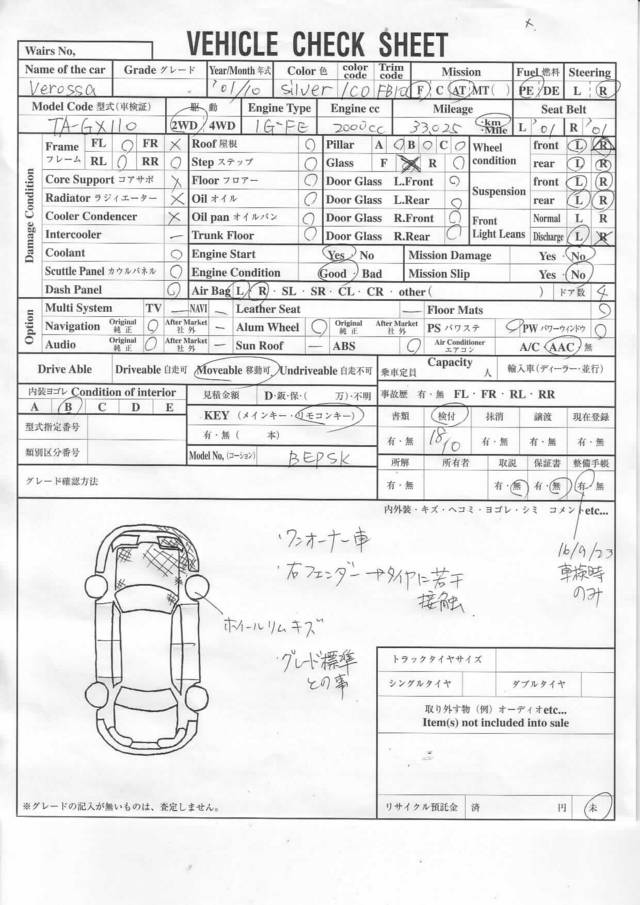 Wairs No,
VEHICLE CHECK SHEET
Name of the car Grade グレード Year/Month 年式 Color 色 color code Trim code Mission Fuel 燃料 Steering
Verossa '01/10 Silver 1C0 FB10 F C AT MT( ) PE/DE L R
Model Code 型式(車検証) 駆動 Engine Type Engine cc Mileage Seat Belt
TA-GX110 2WD/4WD 1G-FE 2000cc 33,025 ・km ・Mile L '01 R '01
Damage Condition
Frame フレーム FL ○ FR × Roof 屋根 ○ Pillar A ○ B ○ C ○ Wheel condition front L R
RL ○ RR ○ Step ステップ ○ Glass F × R ○ rear L R
Core Support コアサポ × Floor フロアー ○ Door Glass L.Front ○ Suspension front L R
Radiator ラジィエーター × Oil オイル ○ Door Glass L.Rear ○ rear L R
Cooler Condencer × Oil pan オイルパン ○ Door Glass R.Front ○ Front Light Leans Normal L R
Intercooler － Trunk Floor ○ Door Glass R.Rear ○ Discharge L R
Coolant ○ Engine Start Yes・No Mission Damage Yes・No
Scuttle Panel カウルパネル ○ Engine Condition Good・Bad Mission Slip Yes・No
Dash Panel ○ Air Bag L・R・SL・SR・CL・CR・other( ) ドア数 4
Option
Multi System TV － NAVI － Leather Seat － Floor Mats ○
Navigation Original 純正 ○ After Market 社外 Alum Wheel ○ Original 純正 After Market 社外 PS パワステ ○ PW パワーウインドウ ○
Audio Original 純正 ○ After Market 社外 － Sun Roof － ABS ○ Air Conditioner エアコン A/C AAC 無
Drive Able Driveable 自走可 Moveable 移動可 Undriveable 自走不可 乗車定員 Capacity 人 輸入車(ディーラー・並行)
内装ヨゴレ Condition of interior 見積金額 D・鈑・保・( 万)・不明 事故歴 有・無 FL・FR・RL・RR
A B C D E KEY (メインキー・リモコンキー) 書類 検付 抹消 譲渡 現在登録
型式指定番号 有・無( 本) 有・無 18/10 有・無 有・無 有・無
類別区分番号 Model No,(コーション) BEPSK 所解 所有者 取説 保証書 整備手帳
グレード確認方法 有・無 有・無 有・無 有・無
内外装・キズ・ヘコミ・ヨゴレ・シミ コメントetc...
・ワンオーナー車
16/9/23
車検時
のみ
・右フェンダー→タイヤに若干
接触
ホイールリムキズ
・グレード標準
との事
トラックタイヤサイズ
シングルタイヤ ダブルタイヤ
取り外す物(例)オーディオetc...
Item(s) not included into sale
※グレードの記入が無いものは、査定しません。
リサイクル預託金 済 円 未